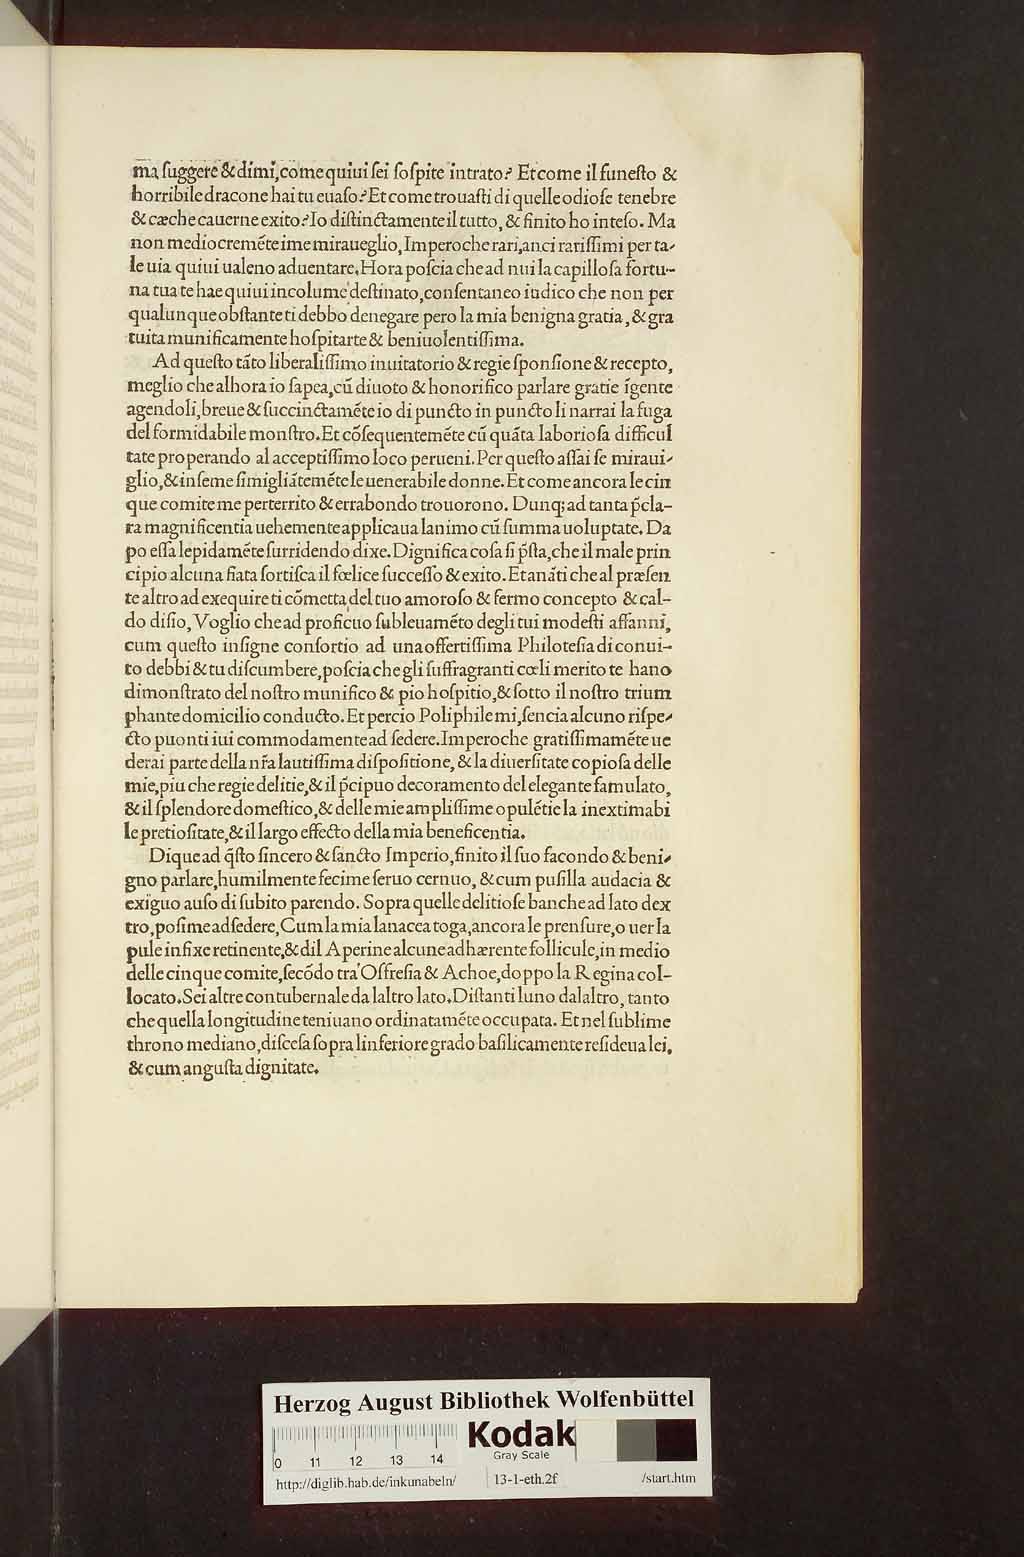 ma, ſuggere & dimi, come quiui ſei ſoſpite intrato? Et come il funeſto &
horribile dracone hai tu euaſo? Et come trouaſti di quelle odioſe tenebre
& cæche cauerne exito? Io diſtinctamente il tutto, & finito ho inteſo. Ma
non mediocremẽte ime miraueglio, Imperoche rari, anci rariſſimi per ta-
le uia quiui ualeno aduentare. Hora poſcia che ad nui la capilloſa fortu-
na tua te hae quiui incolume deſtinato, conſentaneo iudico che non per
qualunque obſtante ti debbo denegare pero la mia benigna gratia, & gra
tuita munificamente hoſpitarte & beniuolentiſſima.
Ad queſto tãto liberaliſſimo inuitatorio & regie ſponſione & recepto,
meglio che alhora io ſapea, cũ diuoto & honorifico parlare gratie ĩgente
agendoli, breue & ſuccinctamẽte io di puncto in puncto li narrai la fuga
del formidabile monſtro. Et cõſequentemẽte cũ quãta laborioſa difficul
tate properando al acceptiſſimo loco perueni. Per queſto aſſai ſe miraui-
glio, & inſeme ſimigliãtemẽte le uenerabile donne. Et come ancora le cin
que comite me perterrito & errabondo trouorono. Dunq; ad tanta p̃cla-
ra magnificentia uehemente applicaua lanimo cũ ſumma uoluptate. Da
po eſſa lepidamẽte ſurridendo dixe. Dignifica coſa ſi p̃ſta, che il male prin
cipio alcuna fiata ſortiſca il fœlice ſucceſſo & exito. Et anãti che al præſen
te altro ad exequire ti cõmetta, del tuo amoroſo & fermo concepto & cal-
do diſio, Voglio che ad proficuo ſubleuamẽto degli tui modeſti affanni,
cum queſto inſigne conſortio ad una offertiſſima Philoteſia di conui-
to debbi & tu diſcumbere, poſcia che gli ſuffragranti cœli merito te hano
dimonſtrato del noſtro munifico & pio hoſpitio, & ſotto il noſtro trium
phante domicilio conducto. Et percio Poliphile mi, ſencia alcuno riſpe-
cto puonti iui commodamente ad ſedere. Imperoche gratiſſimamẽte ue
derai parte della nr̃a lautiſſima diſpoſitione, & la diuerſitate copioſa delle
mie, piu che regie delitie, & il p̃cipuo decoramento del elegante famulato,
& il ſplendore domeſtico, & delle mie ampliſſime opulẽtie la inextimabi
le pretioſitate, & il largo effecto della mia beneficentia.
Dique ad q̃ſto ſincero & ſancto Imperio, finito il ſuo facondo & beni-
gno parlare, humilmente fecime ſeruo cernuo, & cum puſilla audacia &
exiguo auſo di ſubito parendo. Sopra quelle delitioſe banche ad lato dex
tro, poſime ad ſedere, Cum la mia lanacea toga, ancora le prenſure, o uer la
pule infixe retinente, & dil Aperine alcune adhærente follicule, in medio
delle cinque comite, ſecõdo tra Oſfreſia & Achoe, doppo la Regina col-
locato. Sei altre contubernale da laltro lato. Diſtanti luno dalaltro, tanto
che quella longitudine teniuano ordinatamẽte occupata. Et nel ſublime
throno mediano, diſceſa ſopra linferiore grado baſilicamente reſideua lei,
& cum anguſta dignitate.
Herzog August Bibliothek Wolfenbüttel
Kodak
Gray Scale
0 11 12 13 14
http://diglib.hab.de/inkunabeln/ 13-1-eth.2f /start.htm